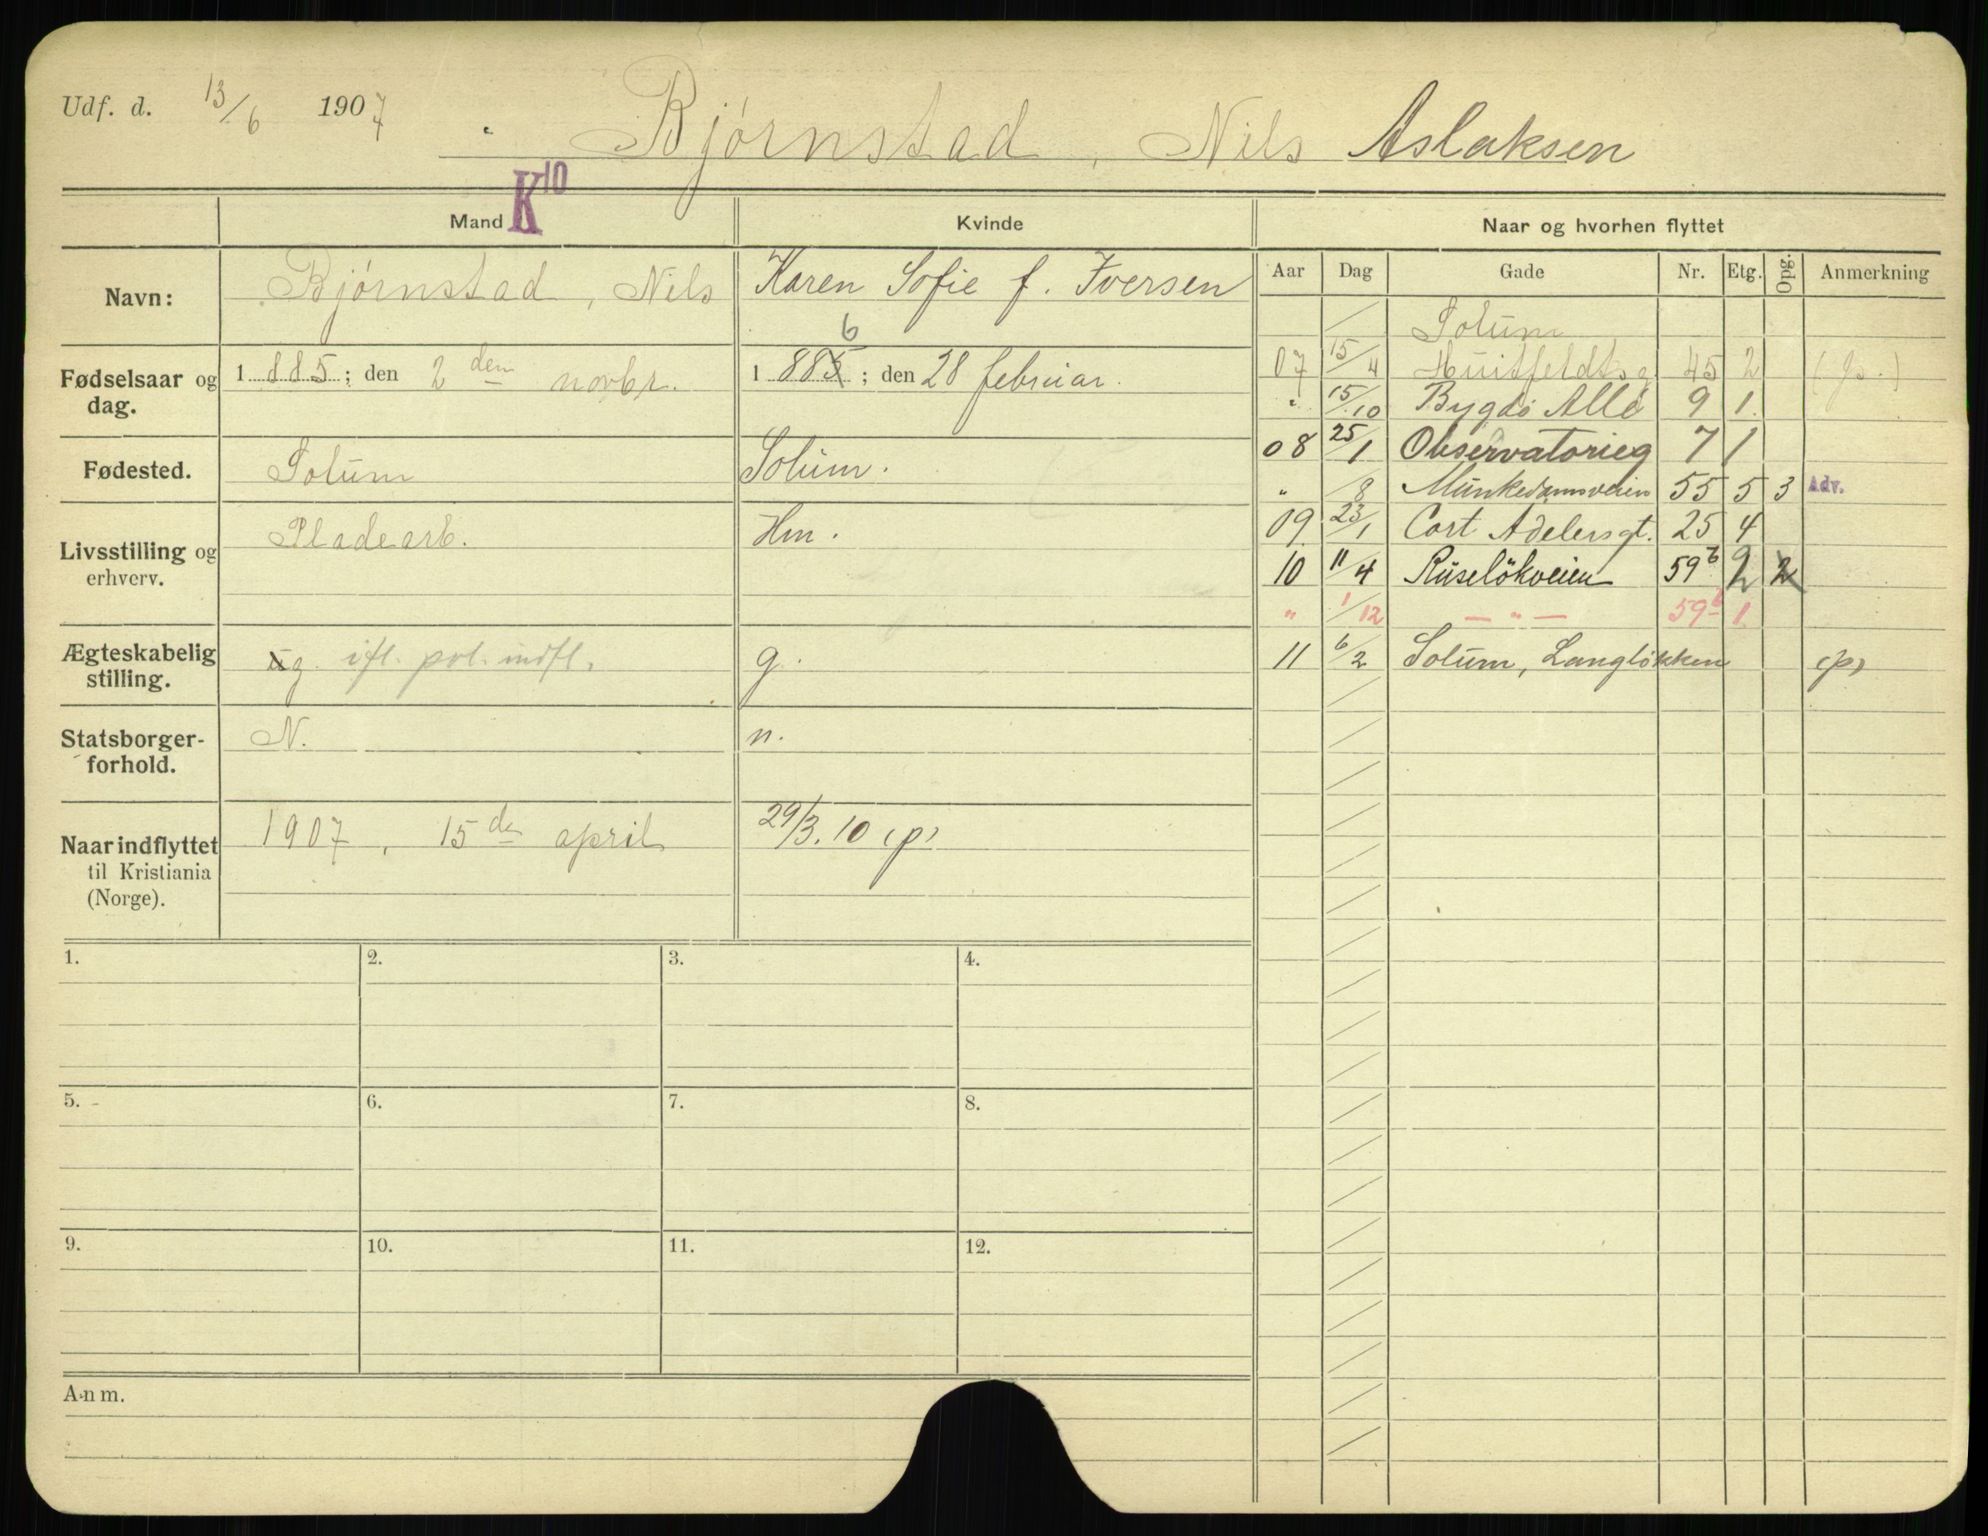 Udf. d. 13/6 1907 Bjørnstad, Nils Aslaksen
K10
Mand Kvinde Naar og hvorhen flyttet
Aar Dag Gade Nr. Etg. Opg. Anmerkning
Navn: Bjørnstad, Nils Karen Sofie f. Iversen
Solum
6
Fødselsaar og dag. 1 885; den 2 den novbr. 1 885; den 28 februar.
07 15/4 Huitfeldtsg. 45 2 (fs.)
" 15/10 Bygdø Allé 9 1.
Fødested. Solum Solum.
08 25/1 Observatorieg 7 1
" /8 Munkedamsveien 55 5 3 Adv.
Livsstilling og erhverv. Pladearb. Hm.
09 23/1 Cort Adelersgt. 25 4
10 11/4 Ruselökveien 59b 2 2
" 1/12 — " — 59b 1
Ægteskabelig stilling. ug. ifl. pol. indfl. g.
11 6/2 Solum, Langlökken (p)
Statsborger-
forhold. N. n.
Naar indflyttet
til Kristiania
(Norge). 1907, 15 de april 29/3. 10 (p)
1. 2. 3. 4.
5. 6. 7. 8.
9. 10. 11. 12.
Anm.